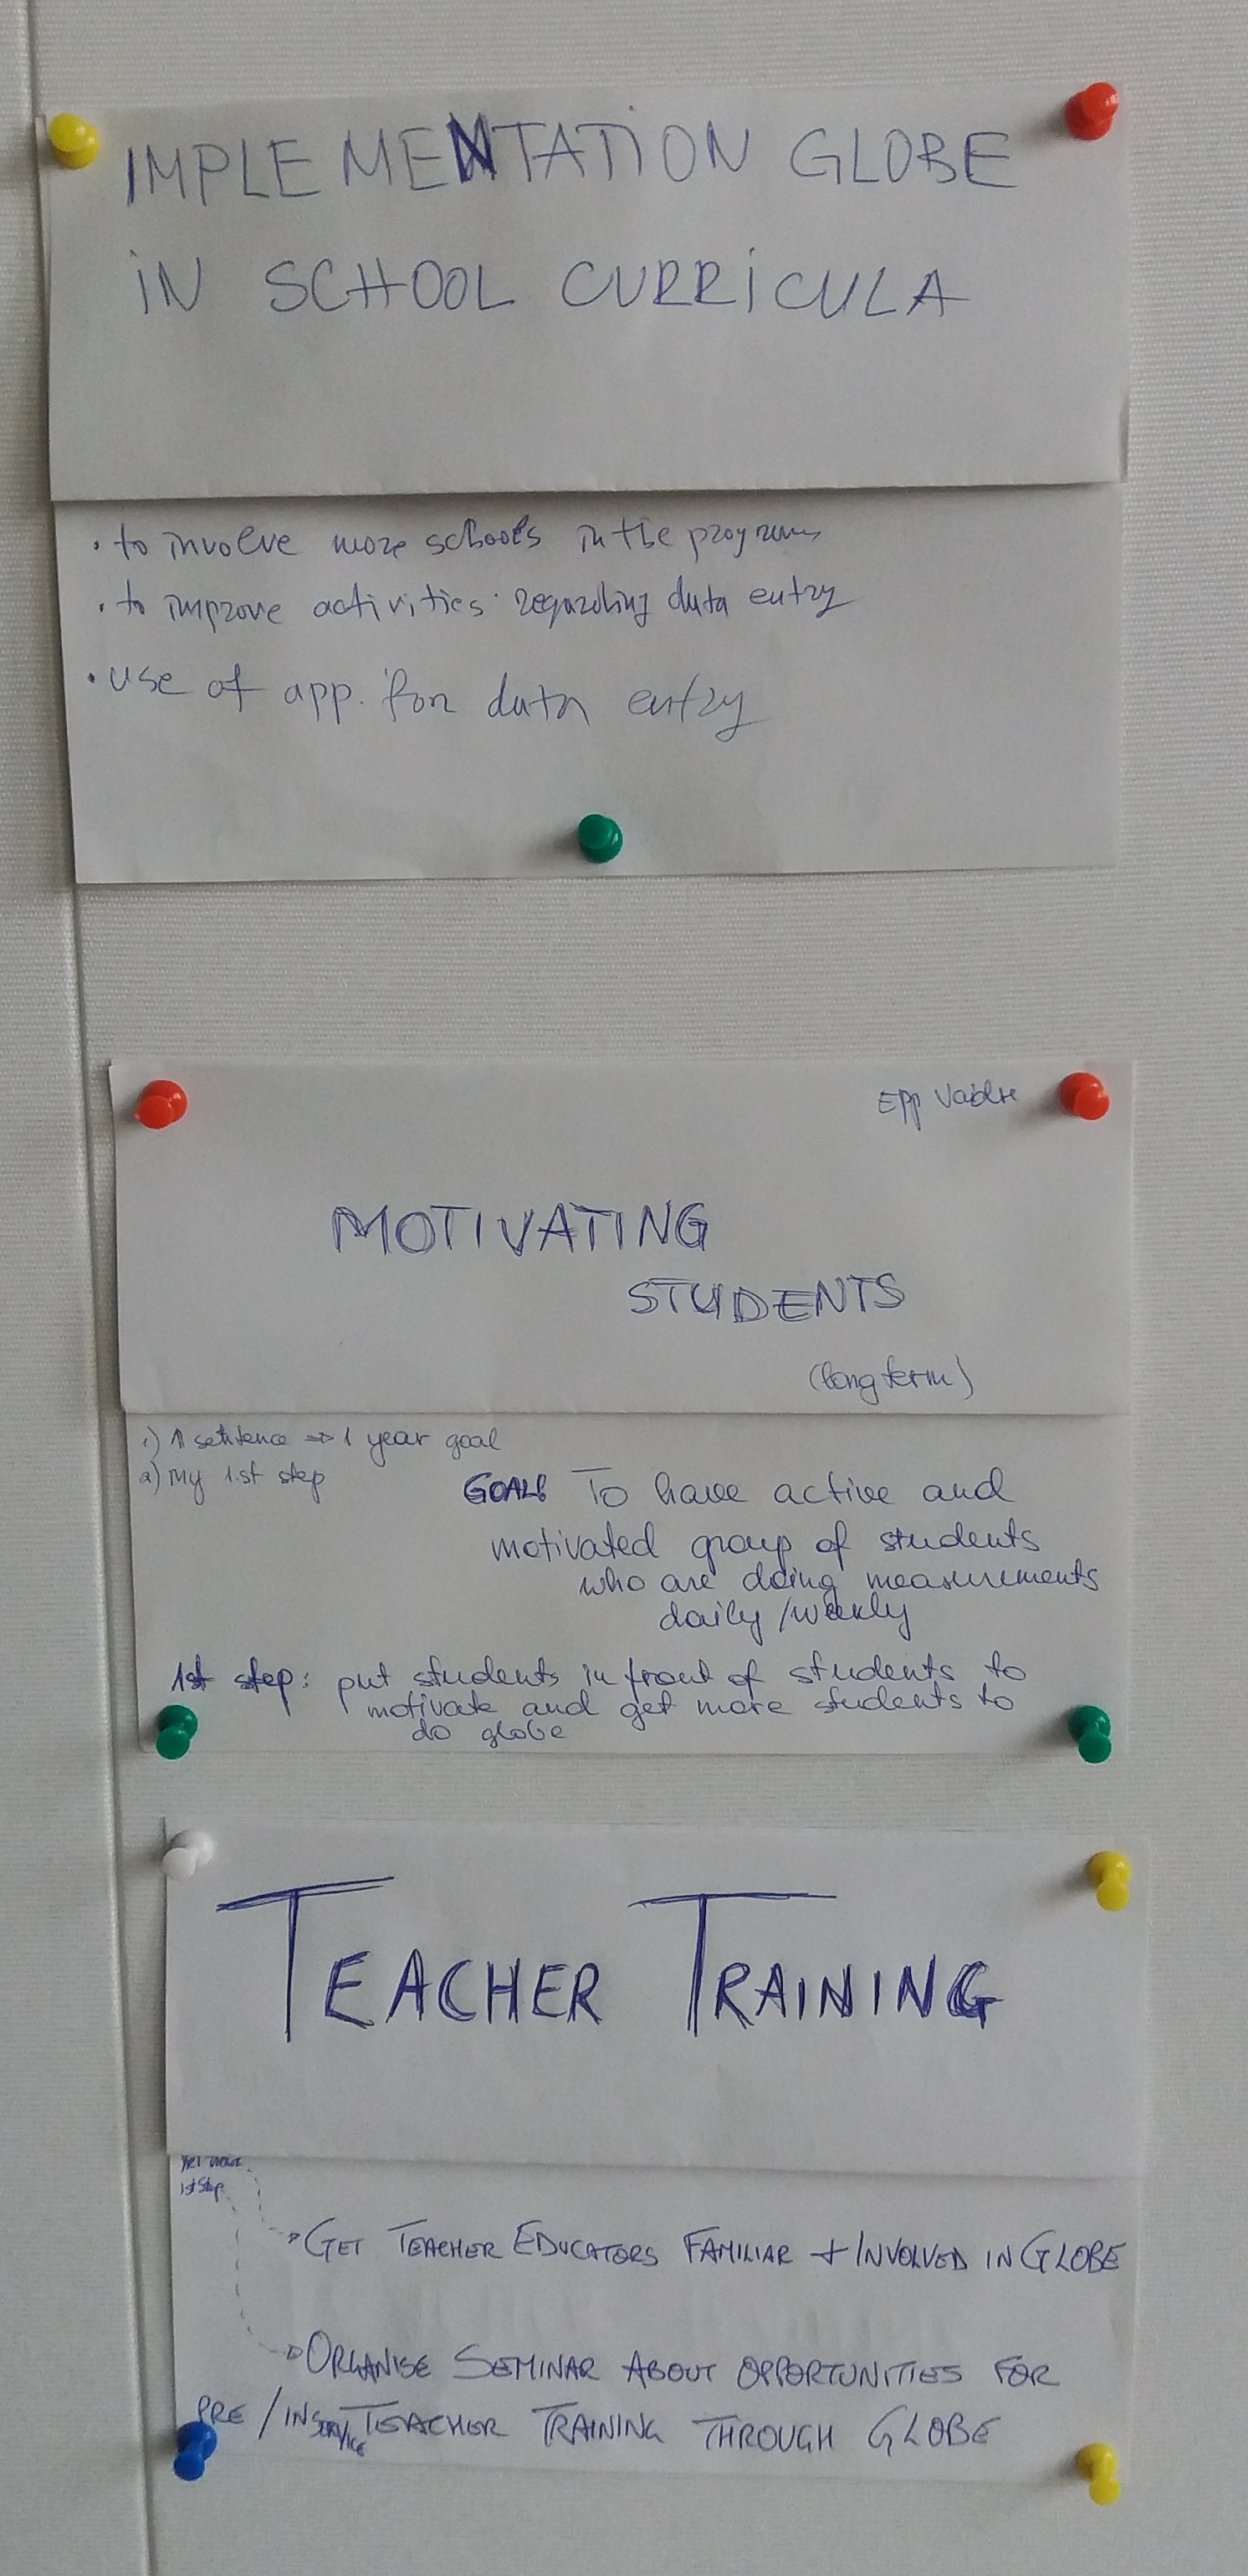 IMPLEMENTATION GLOBE
IN SCHOOL CURRICULA
· to involve more schools in the program
· to improve activities regarding data entry
· use of app. for data entry
Epp Vaidre
MOTIVATING
STUDENTS
(long term)
1) 1 sentence => 1 year goal
2) My 1st step
GOAL: To have active and
motivated group of students
who are doing measurements
daily/weekly
1st step: put students in front of students to
motivate and get more students to
do globe
TEACHER TRAINING
1st Step
GET TEACHER EDUCATORS FAMILIAR + INVOLVED IN GLOBE
ORGANISE SEMINAR ABOUT OPPORTUNITIES FOR
PRE/INSERVICE TEACHER TRAINING THROUGH GLOBE